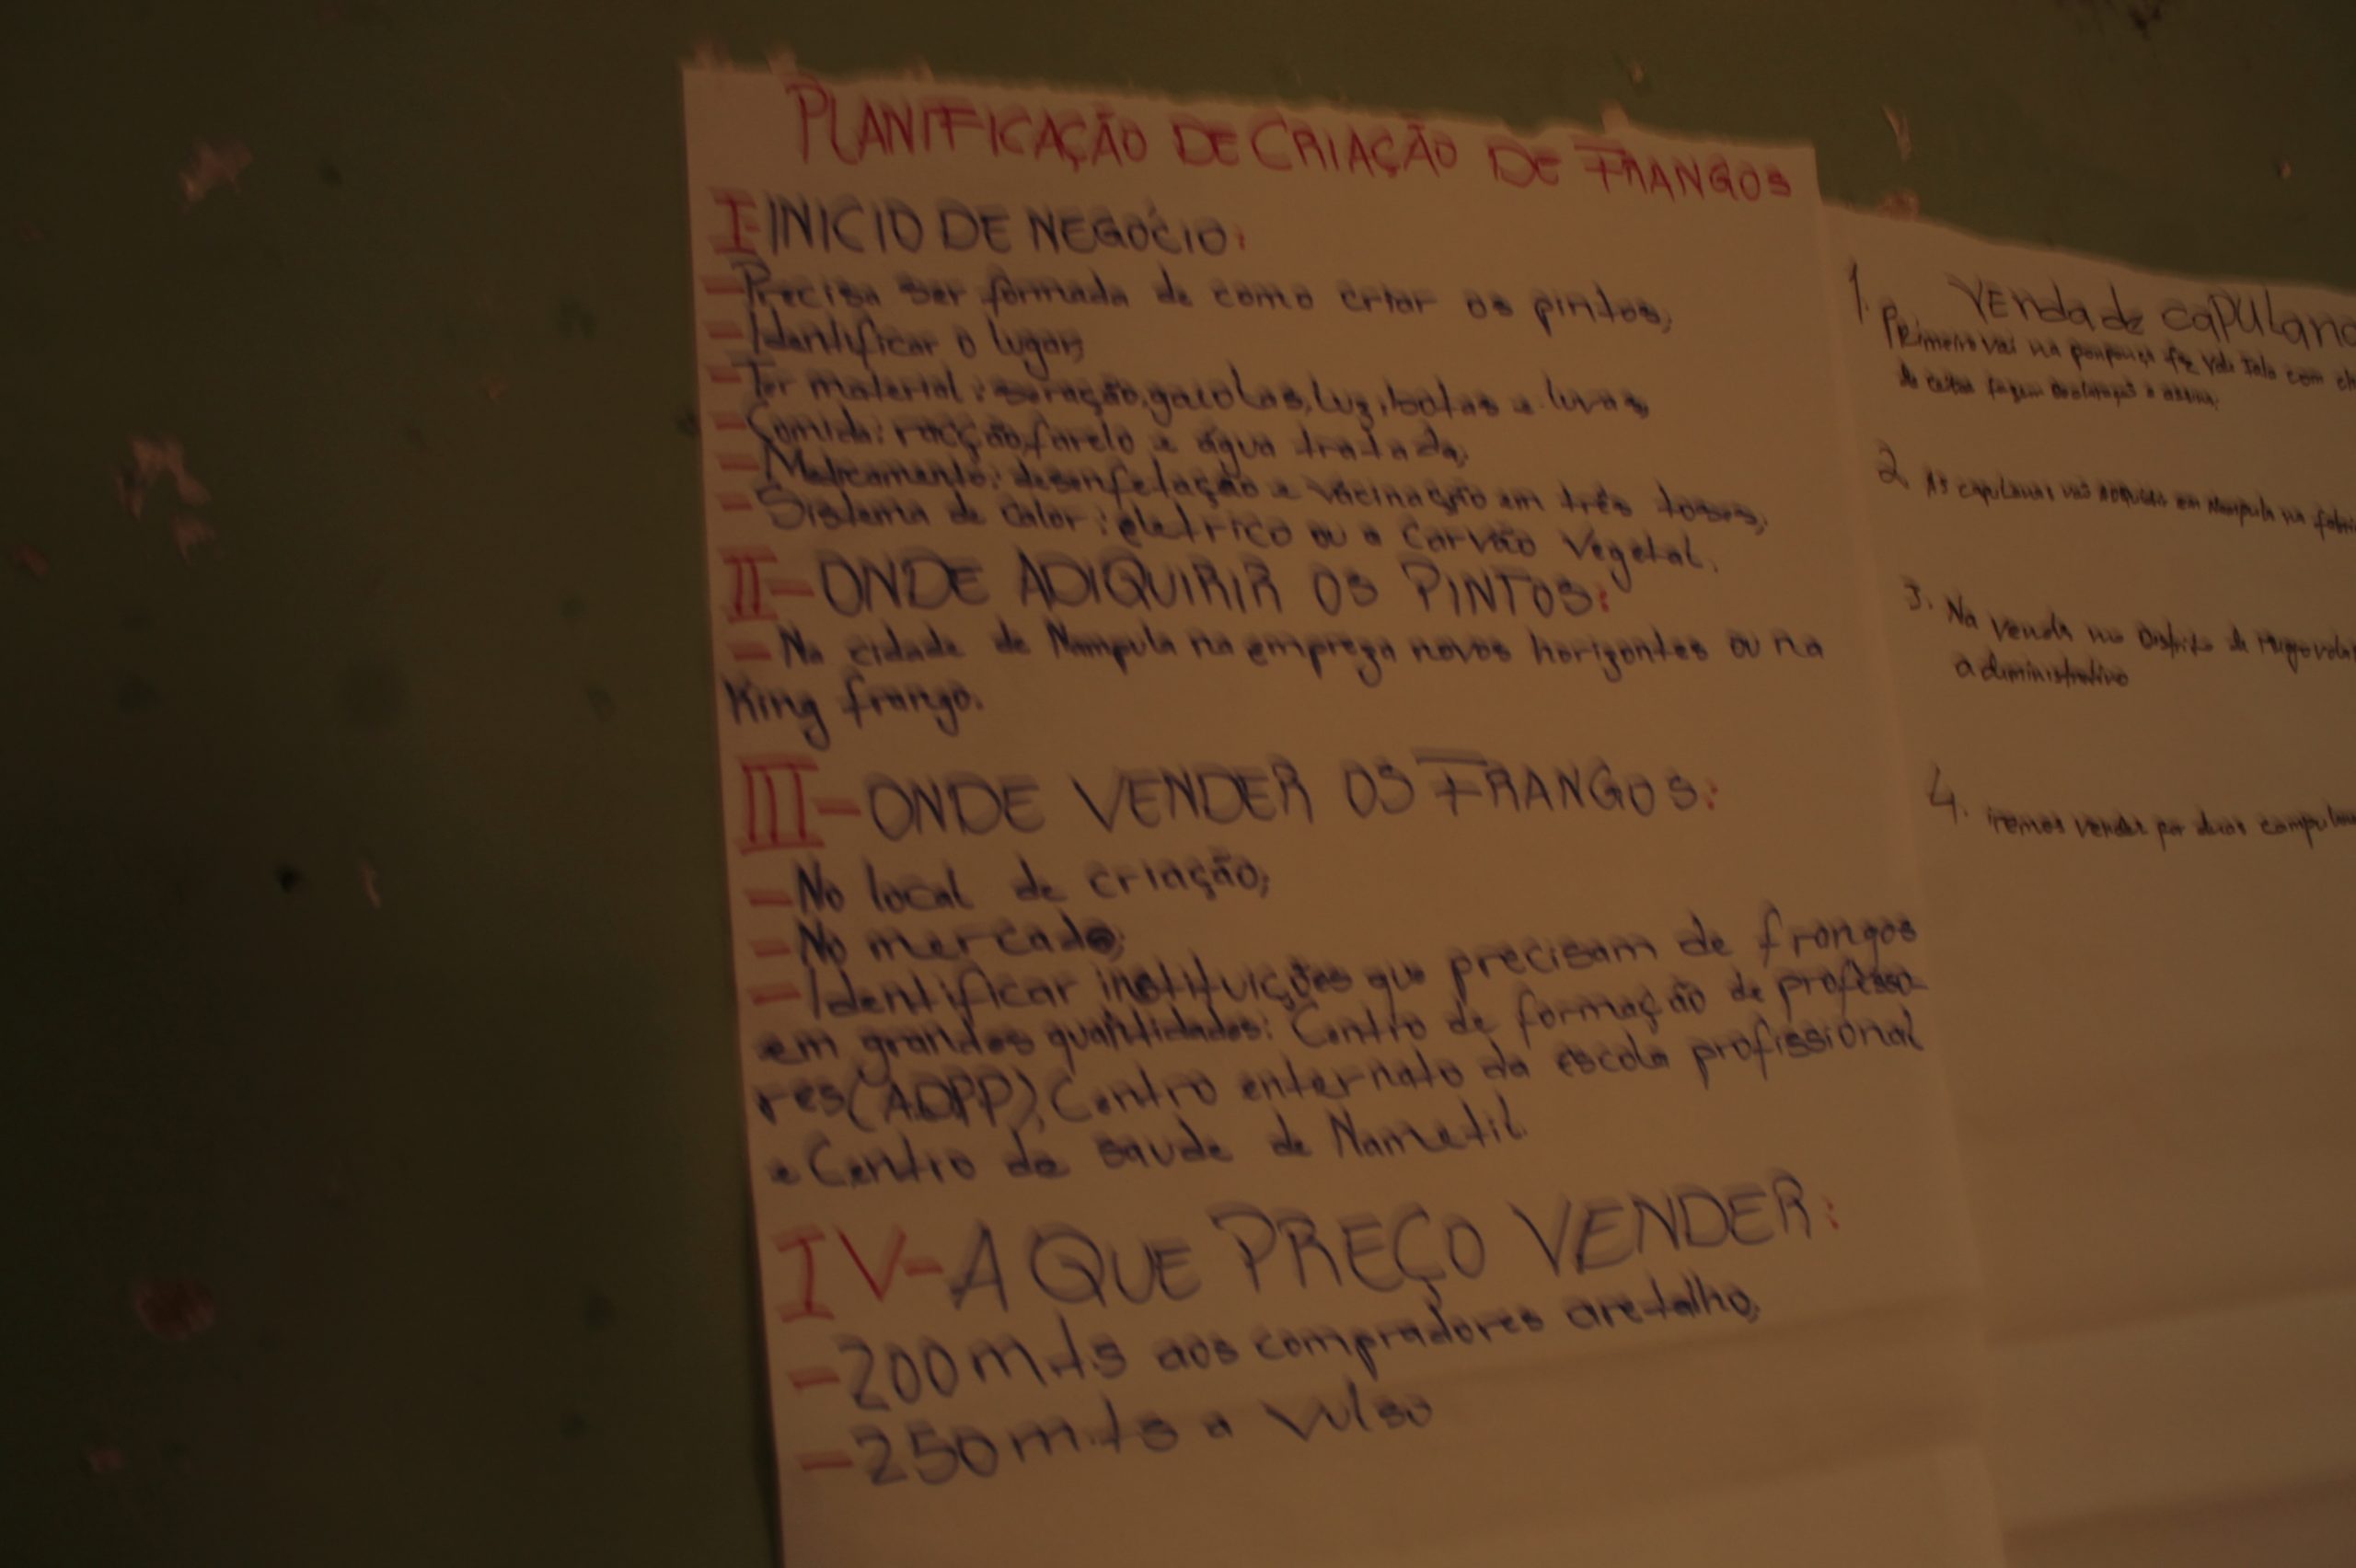 PLANIFICAÇÃO DE CRIAÇÃO DE FRANGOS
I-INICIO DE NEGÓCIO:
-Precisa ser formada de como criar os pintos;
-Identificar o lugar;
-Ter material: gaiolas, luz, botas e luvas
-Comida: racção, farelo e água tratada;
-Medicamento: desenfetação e vacinação em três toses;
-Sistema de calor: életrico ou a carvão vegetal.
II-ONDE ADIQUIRIR OS PINTOS:
-Na cidade de Nampula na empreza novos horizontes ou na
King frango.
III-ONDE VENDER OS FRANGOS:
-No local de criação;
-No mercado;
-Identificar instituições que precisam de frangos
em grandes quantidades: Centro de formação de professo-
res(ADPP), Centro enternato da escola profissional
e Centro de saude de Nametil.
IV-A QUE PREÇO VENDER:
-200mts aos compradores aretalho;
-250mts a vulso
Venda de capulana
1. Primeiro vai na fala com
2. As capulanas em Nampula na
3. Na venda no Distrito de
administrativo
4. iremos vender por duas